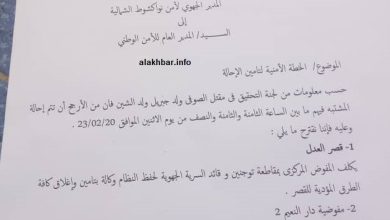 المدير الجهوي لأمن نواكشوط الشمالية
إلى
الســـيد/ المدير العام للأمن الوطني
alakhbar.info
الموضوع/ الخطة الأمنية لتامين الإحالة
حسب معلومات من لجنة التحقيق في مقتل الصوفي ولد جبريل ولد الشين فان من الأرجح أن تتم إحالة
المشتبه فيهم ما بين الساعة الثامنة والثامنة والنصف من يوم الاثنين الموافق 23/02/20 .
وعليه فإننا نقترح ما يلي :
1- قصر العدل
يكلف المفوض المركزي بمقاطعة توجنين و قائد السرية الجهوية لحفظ النظام وكالة بتامين وإغلاق كافة
الطرق المؤدية للقصر .
2- مفوضية دار النعيم 2